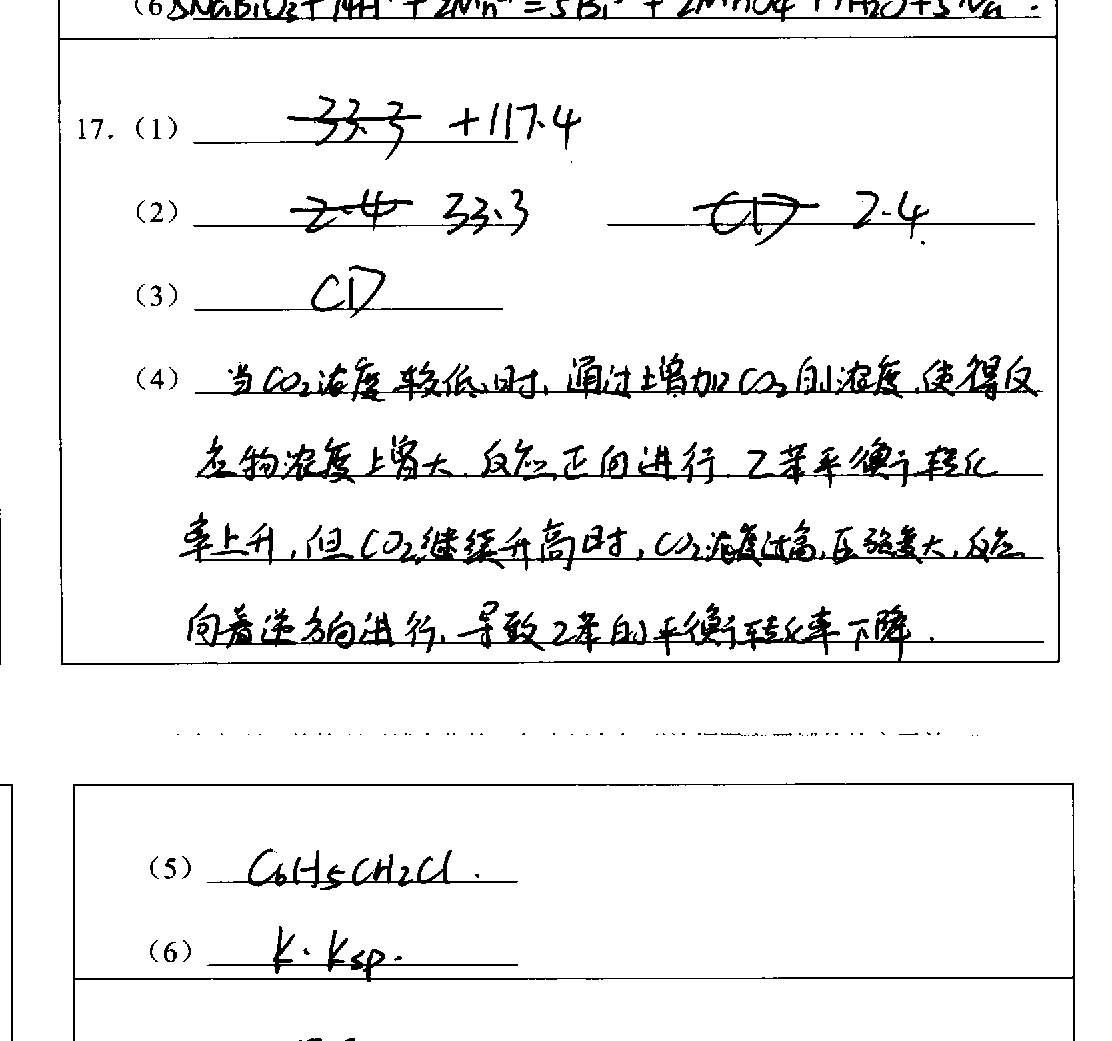 (6) 5NaBiO3+14H⁺+2Mn²⁺=5Bi³⁺+2MnO4⁻+7H2O+5Na⁺.
17. (1) 33.3 +117.4
(2) 2.4 33.3 CD 2.4
(3) CD
(4) 当CO2浓度较低时,通过增加CO2的浓度,使得反
应物浓度增大,反应正向进行,乙苯平衡转化
率上升,但CO2继续升高时,CO2浓度过高,压强变大,反应
向着逆方向进行,导致乙苯的平衡转化率下降.
(5) C6H5CH2Cl.
(6) K·Ksp.